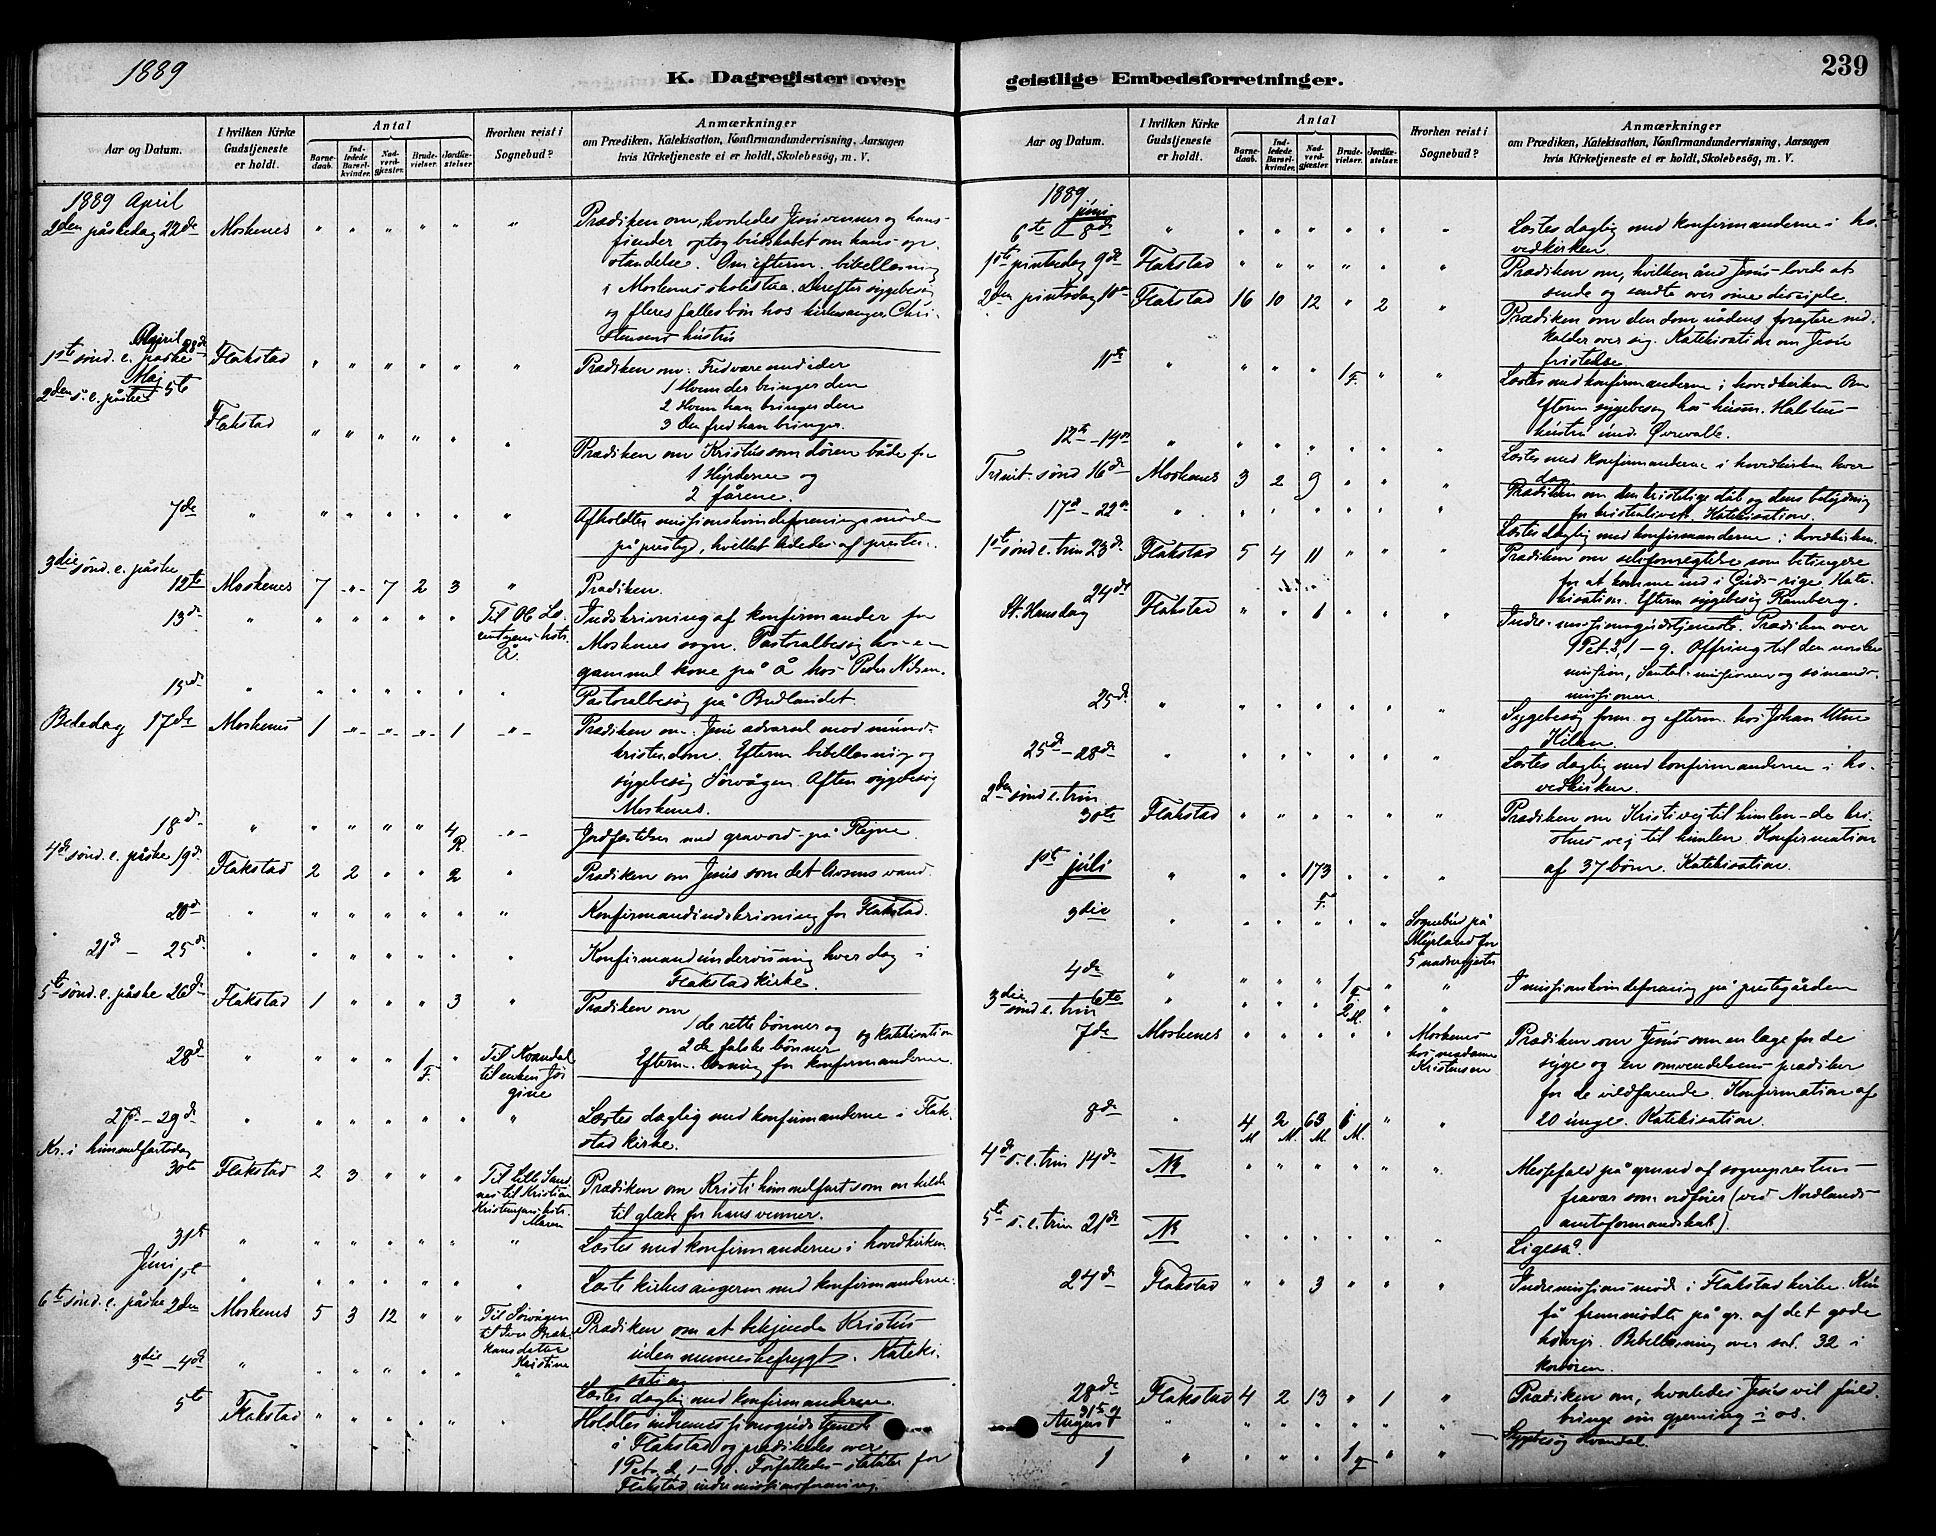 1889
K. Dagregister over
Aar og Datum.
I hvilken Kirke
Gudstjeneste
er holdt.
Antal
Barne-
daab.
Ind-
ledede
Barsel-
kvinder.
Nad-
verd-
gjæster.
Brude-
vielser.
Jordfæ-
stelser
Hvorhen reist i
Sognebud?
Anmærkninger
om Prædiken, Katekisation, Konfirmandundervisning, Aarsagen
hvis Kirketjeneste ei er holdt, Skolebesög, m. V.
1889 April
2den påskedag 22de Moskenes " " " " " " Prædiken om, hvorledes Jesu venner og hans
fiender optog budskabet om hans op-
standelse. Om efterm. bibellæsning
i Moskenes skolestue. Derefter sygebesøg
og fleres fallesbön hos kirkesanger Chri-
stensens hustru
April
1ste sönd. e. påske 28de Flakstad " " " " " " Prædiken om: Fred være med eder
1 Hvem der bringer den
2 Hvem han bringer den
3 Den fred han bringer.
Maj
2den s. e. påske 5te
Flakstad " " " " " " Prædiken om Kristus som dören både for
1 Hyrderne og
2 fårene.
7de " " " " " " " Afholdtes missionskvindeforeningsmöde
på prestegd, hvilket lededes af presten.
3die sönd. e. påske
12te Moskenes 7 -"- 7 2 3 " Prædiken.
13de " " " " " " Til Ol. La-
Å. Indskrivning af konfirmander for
Moskenes sogn. Pastoralbesøg hos en
gammel kone på Å hos Peder Nilsen.
15de " " " " " " " Pastoralbesøg på
Bededag 17de Moskenes 1 -"- -"- -"- 1 -"- Prædiken om: Jesu advarsel mod mund-
kristendom. Efterm bibellæsning og
sygebesög Sörvågen. Aften sygebesög
Moskenes.
18de " " " " " 4 R. -"- Jordfæstelser med gravord på Rejne.
4de sönd. e. påske 19de Flakstad 2 2 " " 2 " Prædiken om Jesus som det livsens vand.
20de " " " " " " " Konfirmandindskrivning for Flakstad.
21de – 25de " " " " " " " Konfirmandundervisning hver dag i
Flakstad kirke.
5te sönd. e. påske 26de Flakstad 1 " " " 3 " Prædiken om
1 de rette bönner og
2 de falske bönner og katekisation
28de " " " " 1 F. " Til Kvandal
til enken Jör-
gine Efterm. læsning for konfirmanderne.
27de – 29de " " " " " " " Læstes daglig med konfirmanderne i Flak-
stad kirke.
Kr. i himmelfartsdag
30te Flakstad 2 3 " " " Til Lille Sand-
nes til Kristian
Kristensens hstr.
Maren Prædiken om Kristi himmelfart som en kilde
til glæde for hans venner.
31te " " " " " " " Læstes med konfirmanderne i hovedkirken.
Juni 1ste " " " " " " " Læste kirkesangeren med konfirmanderne.
6te sönd. e. påske 2den Moskenes 5 3 12 " " Til Sörvågen
Kristine Prædiken om at bekjende Kristus
uden menneskefrygt. Kateki-
sation
3die – 4de " " " " " " " Læstes daglig med konfirmanderne.
5te Flakstad " " " " " " Holdtes indremissionsgudstjeneste
i Flakstad og prædikedes over
1 Pet. 2, 1-10. Forfattedes statuter for
Flakstad indremissionsforening.
geistlige Embedsforretninger.
239
Aar og Datum.
I hvilken Kirke
Gudstjeneste
er holdt.
Antal
Barne-
daab.
Ind-
ledede
Barsel-
kvinder.
Nad-
verd-
gjæster.
Brude-
vielser.
Jordfæ-
stelser
Hvorhen reist i
Sognebud?
Anmærkninger
om Prædiken, Katekisation, Konfirmandundervisning, Aarsagen
hvis Kirketjeneste ei er holdt, Skolebesög, m. V.
1889
juni
6te 8de " " " " " " " Læstes daglig med konfirmanderne i ho-
vedkirken
1ste pintsedag 9de Flakstad " " " " " " Prædiken om, hvilken ånd Jesus lovede at
sende og sendte over sine disciple.
2den pintsedag 10de Flakstad 16 10 12 " 2 " Prædiken om den dom nådens foragtere ned-
kalder over sig. Katekisation om Jesu
fristelse
11te " " " " 1 F. " " Læstes med konfirmanderne i hovedkirken Om
Efterm sygebesøg hos husm. Halstens
hustru
12te – 14de " " " " " " " Læstes med konfirmanderne i hovedkirken hver
dag.
Trinit. sönd 16de Moskenes 3 2 9 " " " Prædiken om den kristelige dåb og dens betydning
for kristenlivet. Katekisation.
17de – 22de " " " " " " " Læstes daglig med konfirmanderne i hovedkirken.
1ste sönd e. trin 23de Flakstad 5 4 11 " " " Prædiken om selvfornegtelse som betingelse
for at komme ind i Guds rige. Kate-
kisation. Efterm sygebesög Ramberg.
24de
St. Hansdag Flakstad " " 1 " " " Indre-missionsgudstjeneste. Prædiken over
1 Pet. 2, 1 – 9. Offring til den norske
mission, Santal-missionen og sömands-
missionen
25de " " " " " " " Sygebesög form. og efterm. hos Johan Utne
Kilan.
25de – 28de " " " " " " " Læstes daglig med konfirmanderne i ho-
vedkirken.
2den sönd e. trin
30te Flakstad " " " " " " Prædiken om Kristi vej til himlen – de kri-
stnes vej til himlen. Konfirmation
af 37 börn. Katekisation.
1ste juli " " " 173 F. " " "
3die " " " " " " Sognebud på
Myrland for
5 nadvergjester
4de " " " " 1 F " " I missionskvindeforening på prestegården
6te " " " " 2 M. " "
3die sönd e. trin
7de Moskenes " " " " " Moskenes
hos madame
Kristensen Prædiken om Jesus som en læge for de
syge og en omvendelsens prædiker
for de vildfarende. Konfirmation af
20 unge. Katekisation.
8de " 4 M 2 M. 63 M 1 M. " "
4de s. e. trin 14de NB " " " " " " Messefald på grund af sogneprestens
fravær som ordförer (ved Nordlands
amtsformandskab).
5te s. e. trin 21de NB " " " " " " Ligeså.
24de Flakstad " " 3 " " " Indremissionsmöde i Flakstad kirke. Kun
få fremmödte på gr. af det gode
hövejr. Bibellæsning over sal. 32 i
kordören.
28de Flakstad 4 2 13 " 1 " Prædiken om, hvorledes Jesus vil fuld-
bringe sin gjerning i os.
31te og
August " " " " " " Sygebesög Kvandal.
1 " " " " 1 F " "